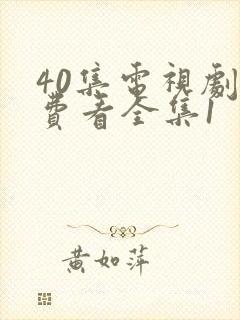 40集電視劇
費看全集1
黃如萍